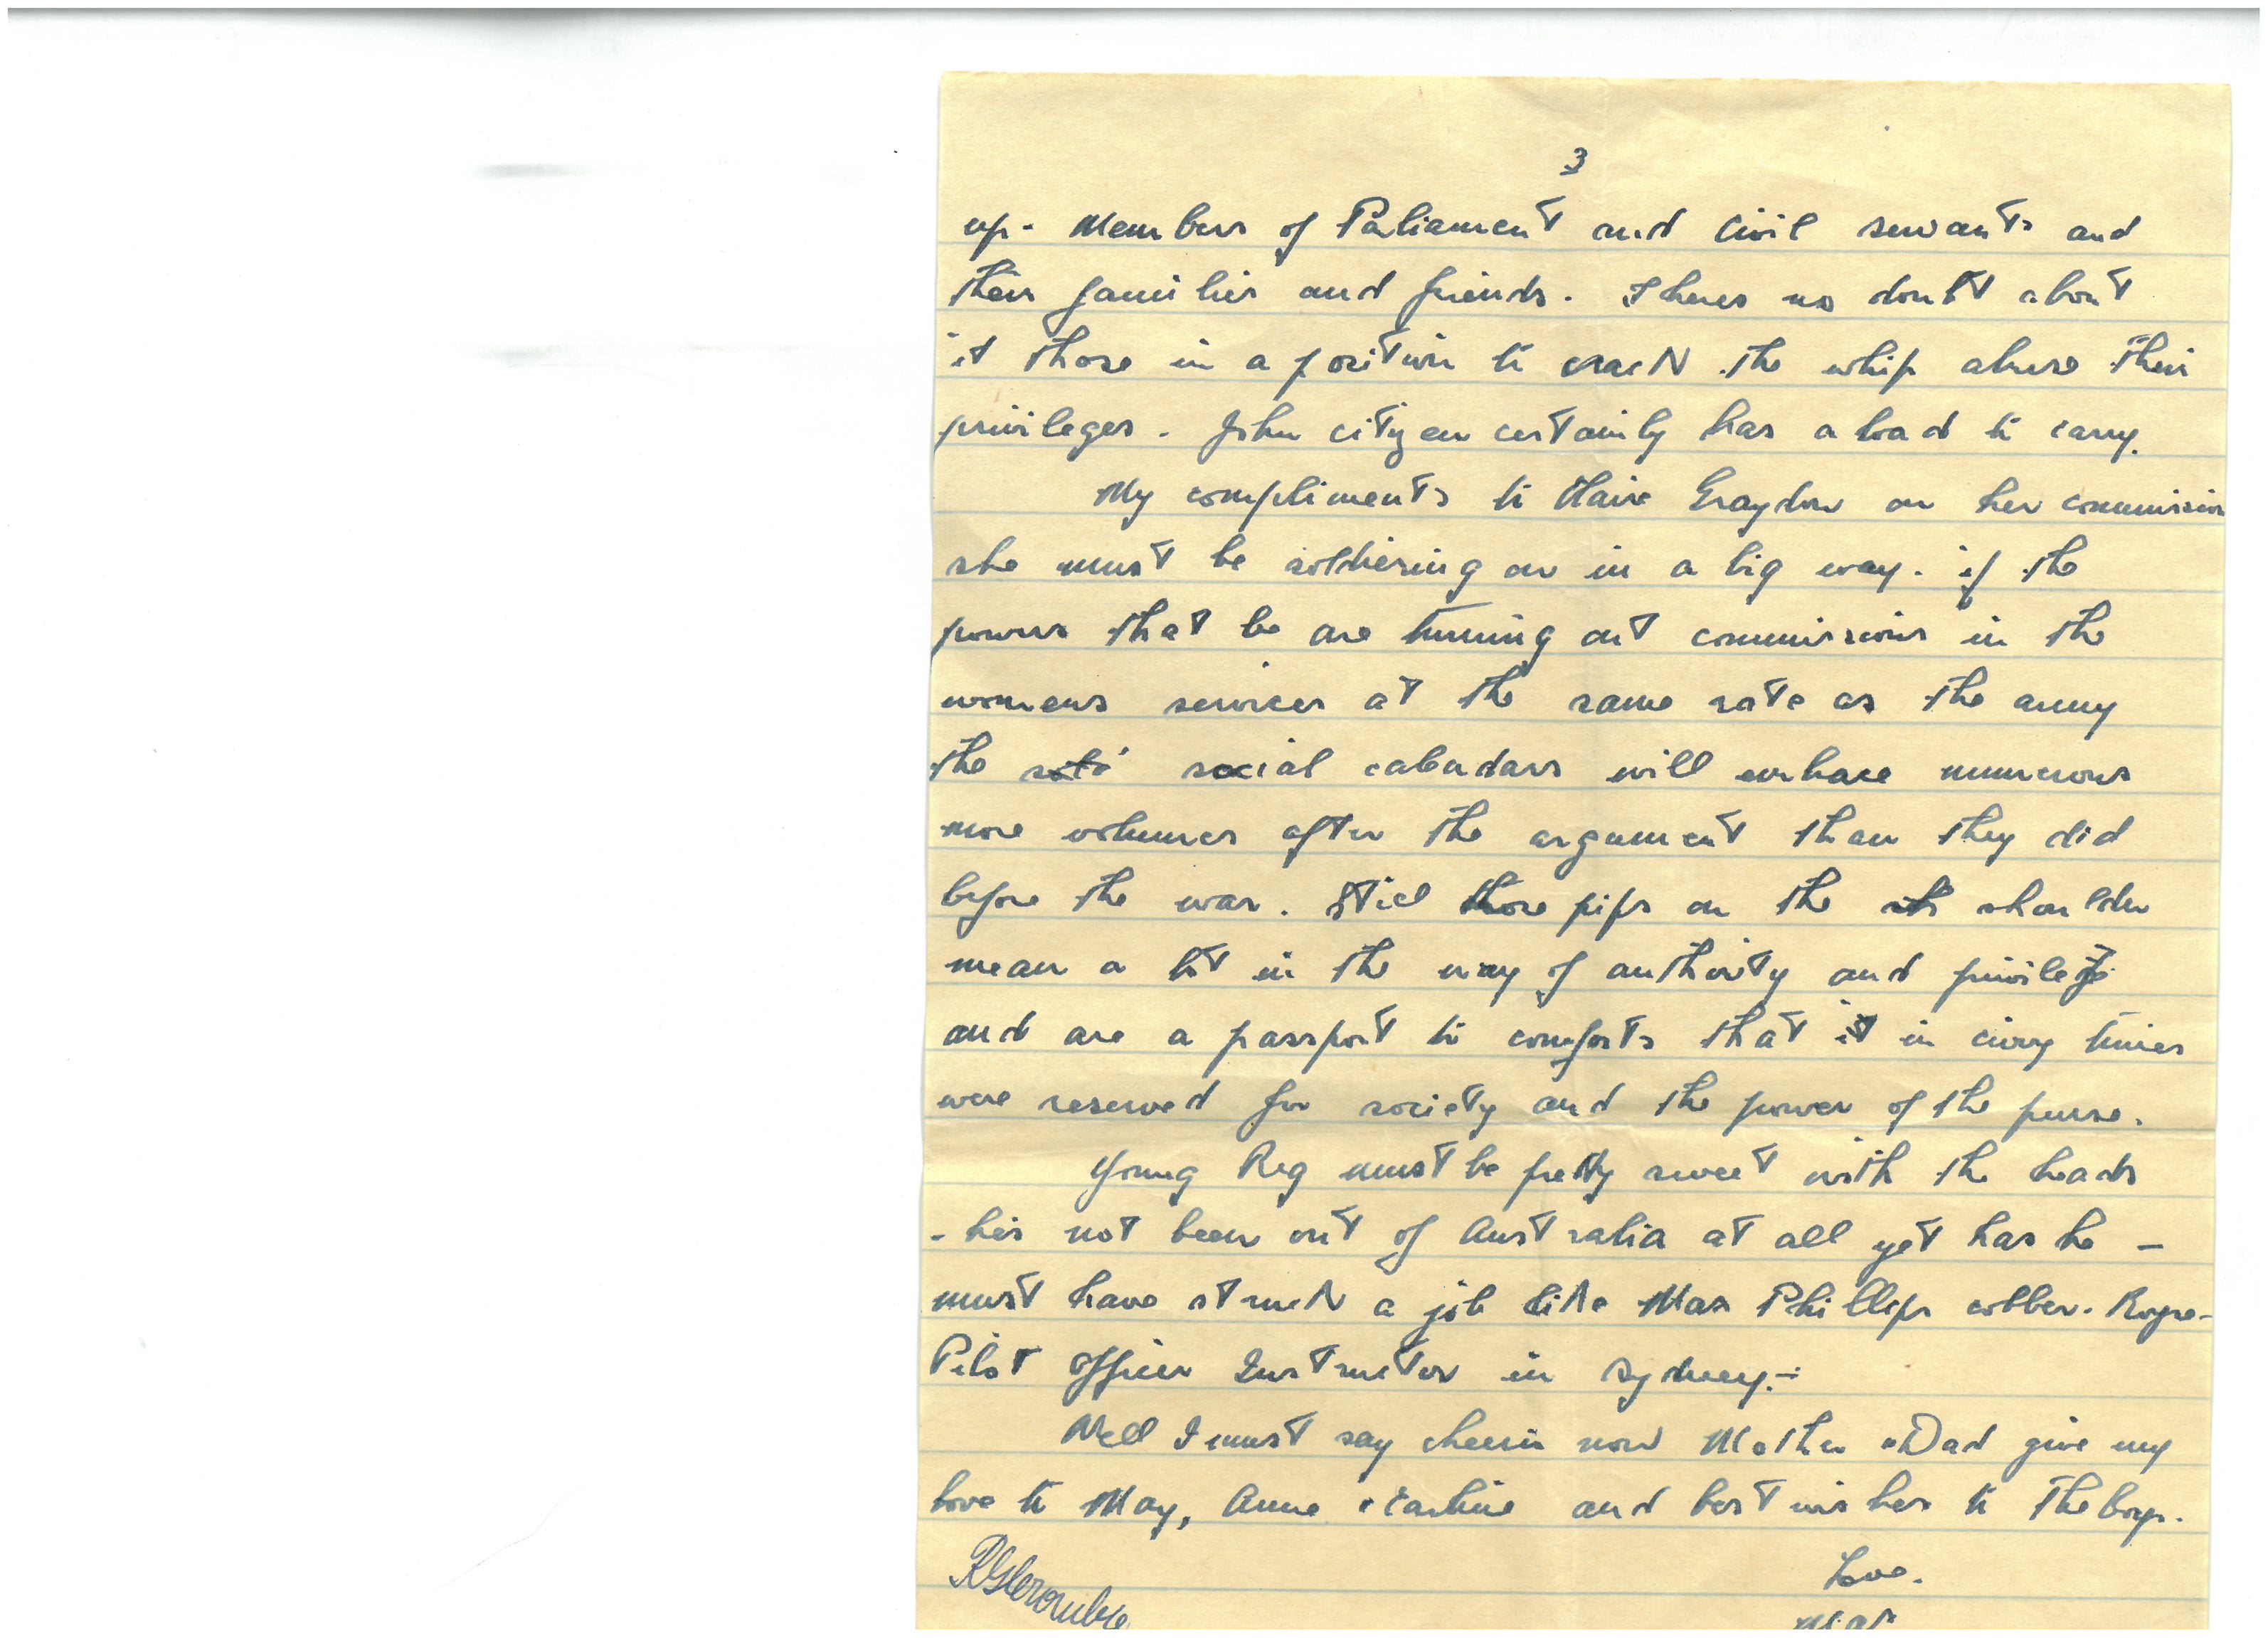 3
up. Members of Parliament and Civil servants and
their families and friends. Theres no doubt about
it those in a position to crack the whip abuse their
privileges. John citizen certainly has a load to carry.
My compliments to Claire Graydon on her commission
she must be soldiering on in a big way. if the
powers that be are turning out commissions in the
womens services at the same rate as the army
the social calendars will embrace numerous
more volumes after the argument than they did
before the war. Still those pips on the shoulder
mean a lot in the way of authority and privilege
and are a passport to comforts that in civvy times
were reserved for society and the power of the purse.
Young Reg must be pretty sweet with the heads
- his not been out of Australia at all yet has he -
must have struck a job like Max Phillips cobber.
Pilot Officer Instructor in Sydney.-
Well I must say cheerio now Mother & Dad give my
love to May, Anne & and best wishes to the boys.
Love.